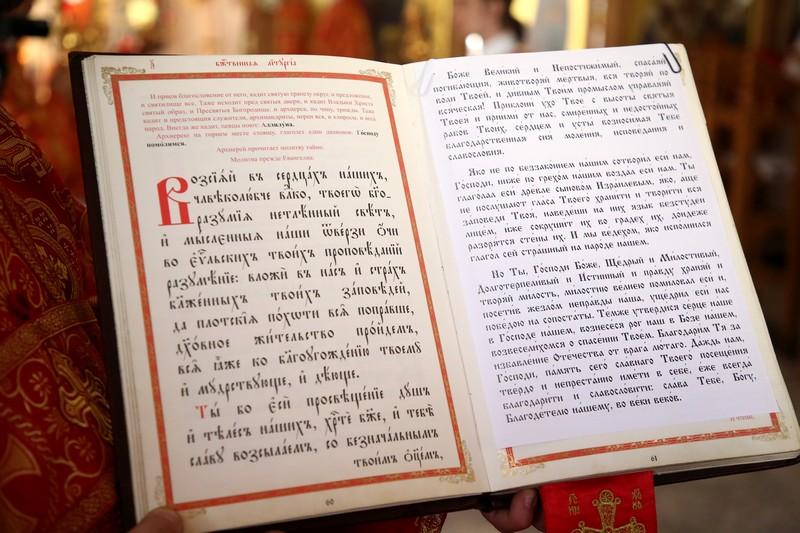 бж҃ственнаѧ лїтꙋргі́а
И прием благословение от него, кадит святую трапезу округ, и предложение,
и святилище все. Таже исходит пред святыя двери, и кадит Владыки Христа
святый образ, и Пресвятыя Богородицы:
народ. Внегда же кадит, певцы поют: Аллилу́иа.
Архиерею на горнем месте стоящу, глаголет един диаконов: Го́споду
помо́лимся.
Архиерей прочитает молитву тайно.
Молитва прежде Евангелиа:
Возсїѧ́й въ сердца́хъ на́шихъ,
чл҃вѣколю́бче вл҃ко, твоегѡ̀ бг҃о-
разꙋ́мїѧ нетлѣ́нный свѣ́тъ,
и҆ мы́сленныѧ на́ши ѿве́рзи ѻ҆́чи
во є҆ѵ҃льскихъ твои́хъ проповѣ́данїй
разꙋмѣ́нїе: вложѝ въ на́съ и҆ стра́хъ
бл҃же́нныхъ твои́хъ за́повѣдей,
да плотскі̑ѧ по́хѡти всѧ̑ попра́вше,
дꙋхо́вное жи́тельство про́йдемъ,
всѧ̑ ꙗ҆̀же ко бл҃гоꙋгожде́нїю твоемꙋ̀
и҆ мꙋ́дрствꙋюще, и҆ дѣ́юще.
Ты́ бо є҆сѝ просвѣще́нїе дꙋ́шъ
и҆ тѣле́съ на́шихъ, хрⷭ҇тѐ бж҃е, и҆ тебѣ̀
сла́вꙋ возсыла́емъ, со безнача́льнымъ
твои́мъ ѻ҆ц҃е́мъ,
60
Боже Великий и Непостижимый, спасаяй
погибающия, животворяй мертвыя, вся творяй по
воли Твоей, и дивным Твоим промыслом управляяй
всяческая! Приклони ухо Твое с высоты святыя
Твоея и приими от нас, смиренных и недостойных
рабов Твоих, сердцем и усты возносимая Тебе
благодарственная сия моления, исповедания и
славословия.
Яко не по беззаконием нашим сотворил еси нам,
Господи, ниже по грехом нашим воздал еси нам. Ты
глаголал еси древле сыновом Израилевым, яко, аще
не послушают гласа Твоего хранити и творити вся
заповеди Твоя, наведеши на них язык безстуден
лицем, иже сокрушит их во градех их, дондеже
разорятся стены их. И мы ведехом, яко исполнился
глагол сей страшный на народе нашем.
Но Ты, Господи Боже, Щедрый и Милостивый,
Долготерпеливый и Истинный и правду храняй и
творяй милость, милостию велиею помиловал еси и,
посетив жезлом неправды наша, ущедрил еси нас
победою на сопостаты. Темже утвердися сердце наше
в Господе нашем, вознесеся рог наш в Бозе нашем,
возвеселихомся о спасении Твоем. Благодарим Тя за
избавление Отечества от врага лютаго. Даждь нам,
Господи, память сего славнаго Твоего посещения
твердо и непрестанно имети в себе, еже всегда
благодарити и славословити: слава Тебе, Богу,
Благодетелю нашему, во веки веков.
61